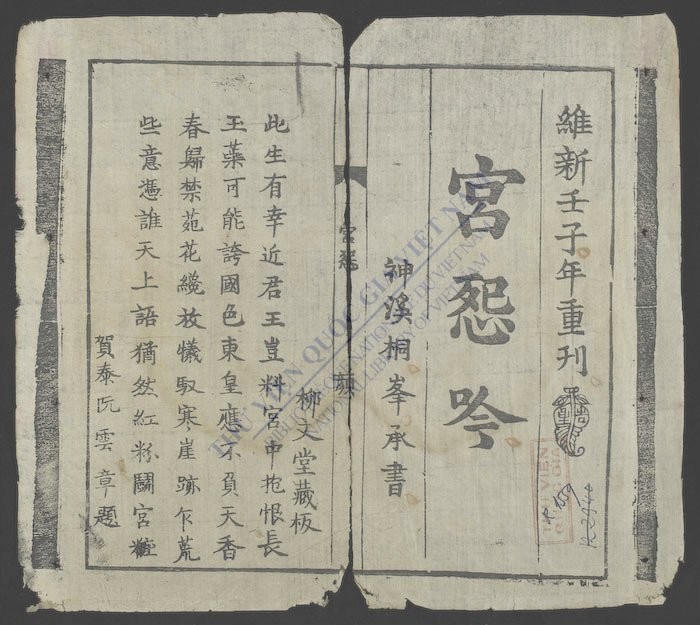 維新壬子年重刊
宮怨吟
神溪桐峯承書
柳文堂藏板
宮怨
此生有幸近君王豈料宮中抱恨長
玉蘂可能誇國色東皇應不負天香
春歸禁苑花纔放犧馭寒崖跡乍荒
些意憑誰天上語猶然紅粉鬪宮粧
賀泰阮雲章題
THƯ VIỆN QUỐC GIA VIỆT NAM
BIBLIOTHÈQUE NATIONALE DU VIETNAM
NATIONAL LIBRARY OF VIETNAM